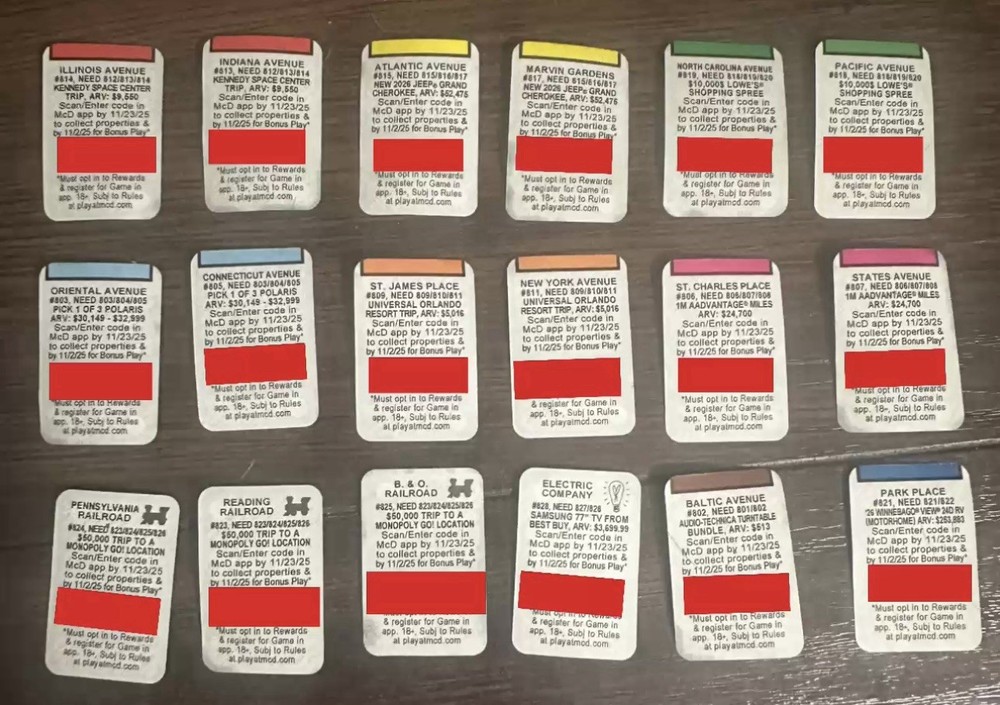 ILLINOIS AVENUE
#814, NEED 812/813/814
KENNEDY SPACE CENTER
TRIP, ARV: $9,550
Scan/Enter code in
McD app by 11/23/25
to collect properties &
by 11/2/25 for Bonus Play*
*Must opt in to Rewards
& register for Game in
app. 18+, Subj to Rules
at playatmcd.com
INDIANA AVENUE
#813, NEED 812/813/814
KENNEDY SPACE CENTER
TRIP, ARV: $9,550
Scan/Enter code in
McD app by 11/23/25
to collect properties &
by 11/2/25 for Bonus Play*
*Must opt in to Rewards
& register for Game in
app. 18+, Subj to Rules
at playatmcd.com
ATLANTIC AVENUE
#815, NEED 815/816/817
NEW 2026 JEEP® GRAND
CHEROKEE, ARV: $52,475
Scan/Enter code in
McD app by 11/23/25
to collect properties &
by 11/2/25 for Bonus Play*
*Must opt in to Rewards
& register for Game in
app. 18+, Subj to Rules
at playatmcd.com
MARVIN GARDENS
#817, NEED 815/816/817
NEW 2026 JEEP® GRAND
CHEROKEE, ARV: $52,475
Scan/Enter code in
McD app by 11/23/25
to collect properties &
by 11/2/25 for Bonus Play*
*Must opt in to Rewards
& register for Game in
app. 18+, Subj to Rules
at playatmcd.com
NORTH CAROLINA AVENUE
#819, NEED 818/819/820
$10,000$ LOWE'S®
SHOPPING SPREE
Scan/Enter code in
McD app by 11/23/25
to collect properties &
by 11/2/25 for Bonus Play*
*Must opt in to Rewards
& register for Game in
app. 18+, Subj to Rules
at playatmcd.com
PACIFIC AVENUE
#818, NEED 818/819/820
$10,000$ LOWE'S®
SHOPPING SPREE
Scan/Enter code in
McD app by 11/23/25
to collect properties &
by 11/2/25 for Bonus Play*
*Must opt in to Rewards
& register for Game in
app. 18+, Subj to Rules
at playatmcd.com
ORIENTAL AVENUE
#803, NEED 803/804/805
PICK 1 OF 3 POLARIS
ARV: $30,149 - $32,999
Scan/Enter code in
McD app by 11/23/25
to collect properties &
by 11/2/25 for Bonus Play*
*Must opt in to Rewards
& register for Game in
app. 18+, Subj to Rules
at playatmcd.com
CONNECTICUT AVENUE
#805, NEED 803/804/805
PICK 1 OF 3 POLARIS
ARV: $30,149 - $32,999
Scan/Enter code in
McD app by 11/23/25
to collect properties &
by 11/2/25 for Bonus Play*
*Must opt in to Rewards
& register for Game in
app. 18+, Subj to Rules
at playatmcd.com
ST. JAMES PLACE
#809, NEED 809/810/811
UNIVERSAL ORLANDO
RESORT TRIP, ARV: $5,016
Scan/Enter code in
McD app by 11/23/25
to collect properties &
by 11/2/25 for Bonus Play*
*Must opt in to Rewards
& register for Game in
app. 18+, Subj to Rules
at playatmcd.com
NEW YORK AVENUE
#811, NEED 809/810/811
UNIVERSAL ORLANDO
RESORT TRIP, ARV: $5,016
Scan/Enter code in
McD app by 11/23/25
to collect properties &
by 11/2/25 for Bonus Play*
& register for Game in
app. 18+, Subj to Rules
at playatmcd.com
ST. CHARLES PLACE
#806, NEED 806/807/808
1M AADVANTAGE® MILES
ARV: $24,700
Scan/Enter code in
McD app by 11/23/25
to collect properties &
by 11/2/25 for Bonus Play*
*Must opt in to Rewards
& register for Game in
app. 18+, Subj to Rules
at playatmcd.com
STATES AVENUE
#807, NEED 806/807/808
1M AADVANTAGE® MILES
ARV: $24,700
Scan/Enter code in
McD app by 11/23/25
to collect properties &
by 11/2/25 for Bonus Play*
*Must opt in to Rewards
& register for Game in
app. 18+, Subj to Rules
at playatmcd.com
PENNSYLVANIA
RAILROAD
#824, NEED 823/824/825/826
$50,000 TRIP TO A
MONOPOLY GO! LOCATION
Scan/Enter code in
McD app by 11/23/25
to collect properties &
by 11/2/25 for Bonus Play*
*Must opt in to Rewards
& register for Game in
app. 18+, Subj to Rules
at playatmcd.com
READING
RAILROAD
#823, NEED 823/824/825/826
$50,000 TRIP TO A
MONOPOLY GO! LOCATION
Scan/Enter code in
McD app by 11/23/25
to collect properties &
by 11/2/25 for Bonus Play*
*Must opt in to Rewards
& register for Game in
app. 18+, Subj to Rules
at playatmcd.com
B. & O.
RAILROAD
#825, NEED 823/824/825/826
$50,000 TRIP TO A
MONOPOLY GO! LOCATION
Scan/Enter code in
McD app by 11/23/25
to collect properties &
by 11/2/25 for Bonus Play*
& register for Game in
app. 18+, Subj to Rules
at playatmcd.com
ELECTRIC
COMPANY
#828, NEED 827/828
SAMSUNG 77" TV FROM
BEST BUY, ARV: $3,699.99
Scan/Enter code in
McD app by 11/23/25
to collect properties &
by 11/2/25 for Bonus Play*
*Must opt in to Rewards
& register for Game in
app. 18+, Subj to Rules
at playatmcd.com
BALTIC AVENUE
#802, NEED 801/802
AUDIO-TECHNICA TURNTABLE
BUNDLE, ARV: $513
Scan/Enter code in
McD app by 11/23/25
to collect properties &
by 11/2/25 for Bonus Play*
*Must opt in to Rewards
& register for Game in
app. 18+, Subj to Rules
at playatmcd.com
PARK PLACE
#821, NEED 821/822
'26 WINNEBAGO® VIEW® 24D RV
(MOTORHOME) ARV: $253,883
Scan/Enter code in
McD app by 11/23/25
to collect properties &
by 11/2/25 for Bonus Play*
*Must opt in to Rewards
& register for Game in
app. 18+, Subj to Rules
at playatmcd.com